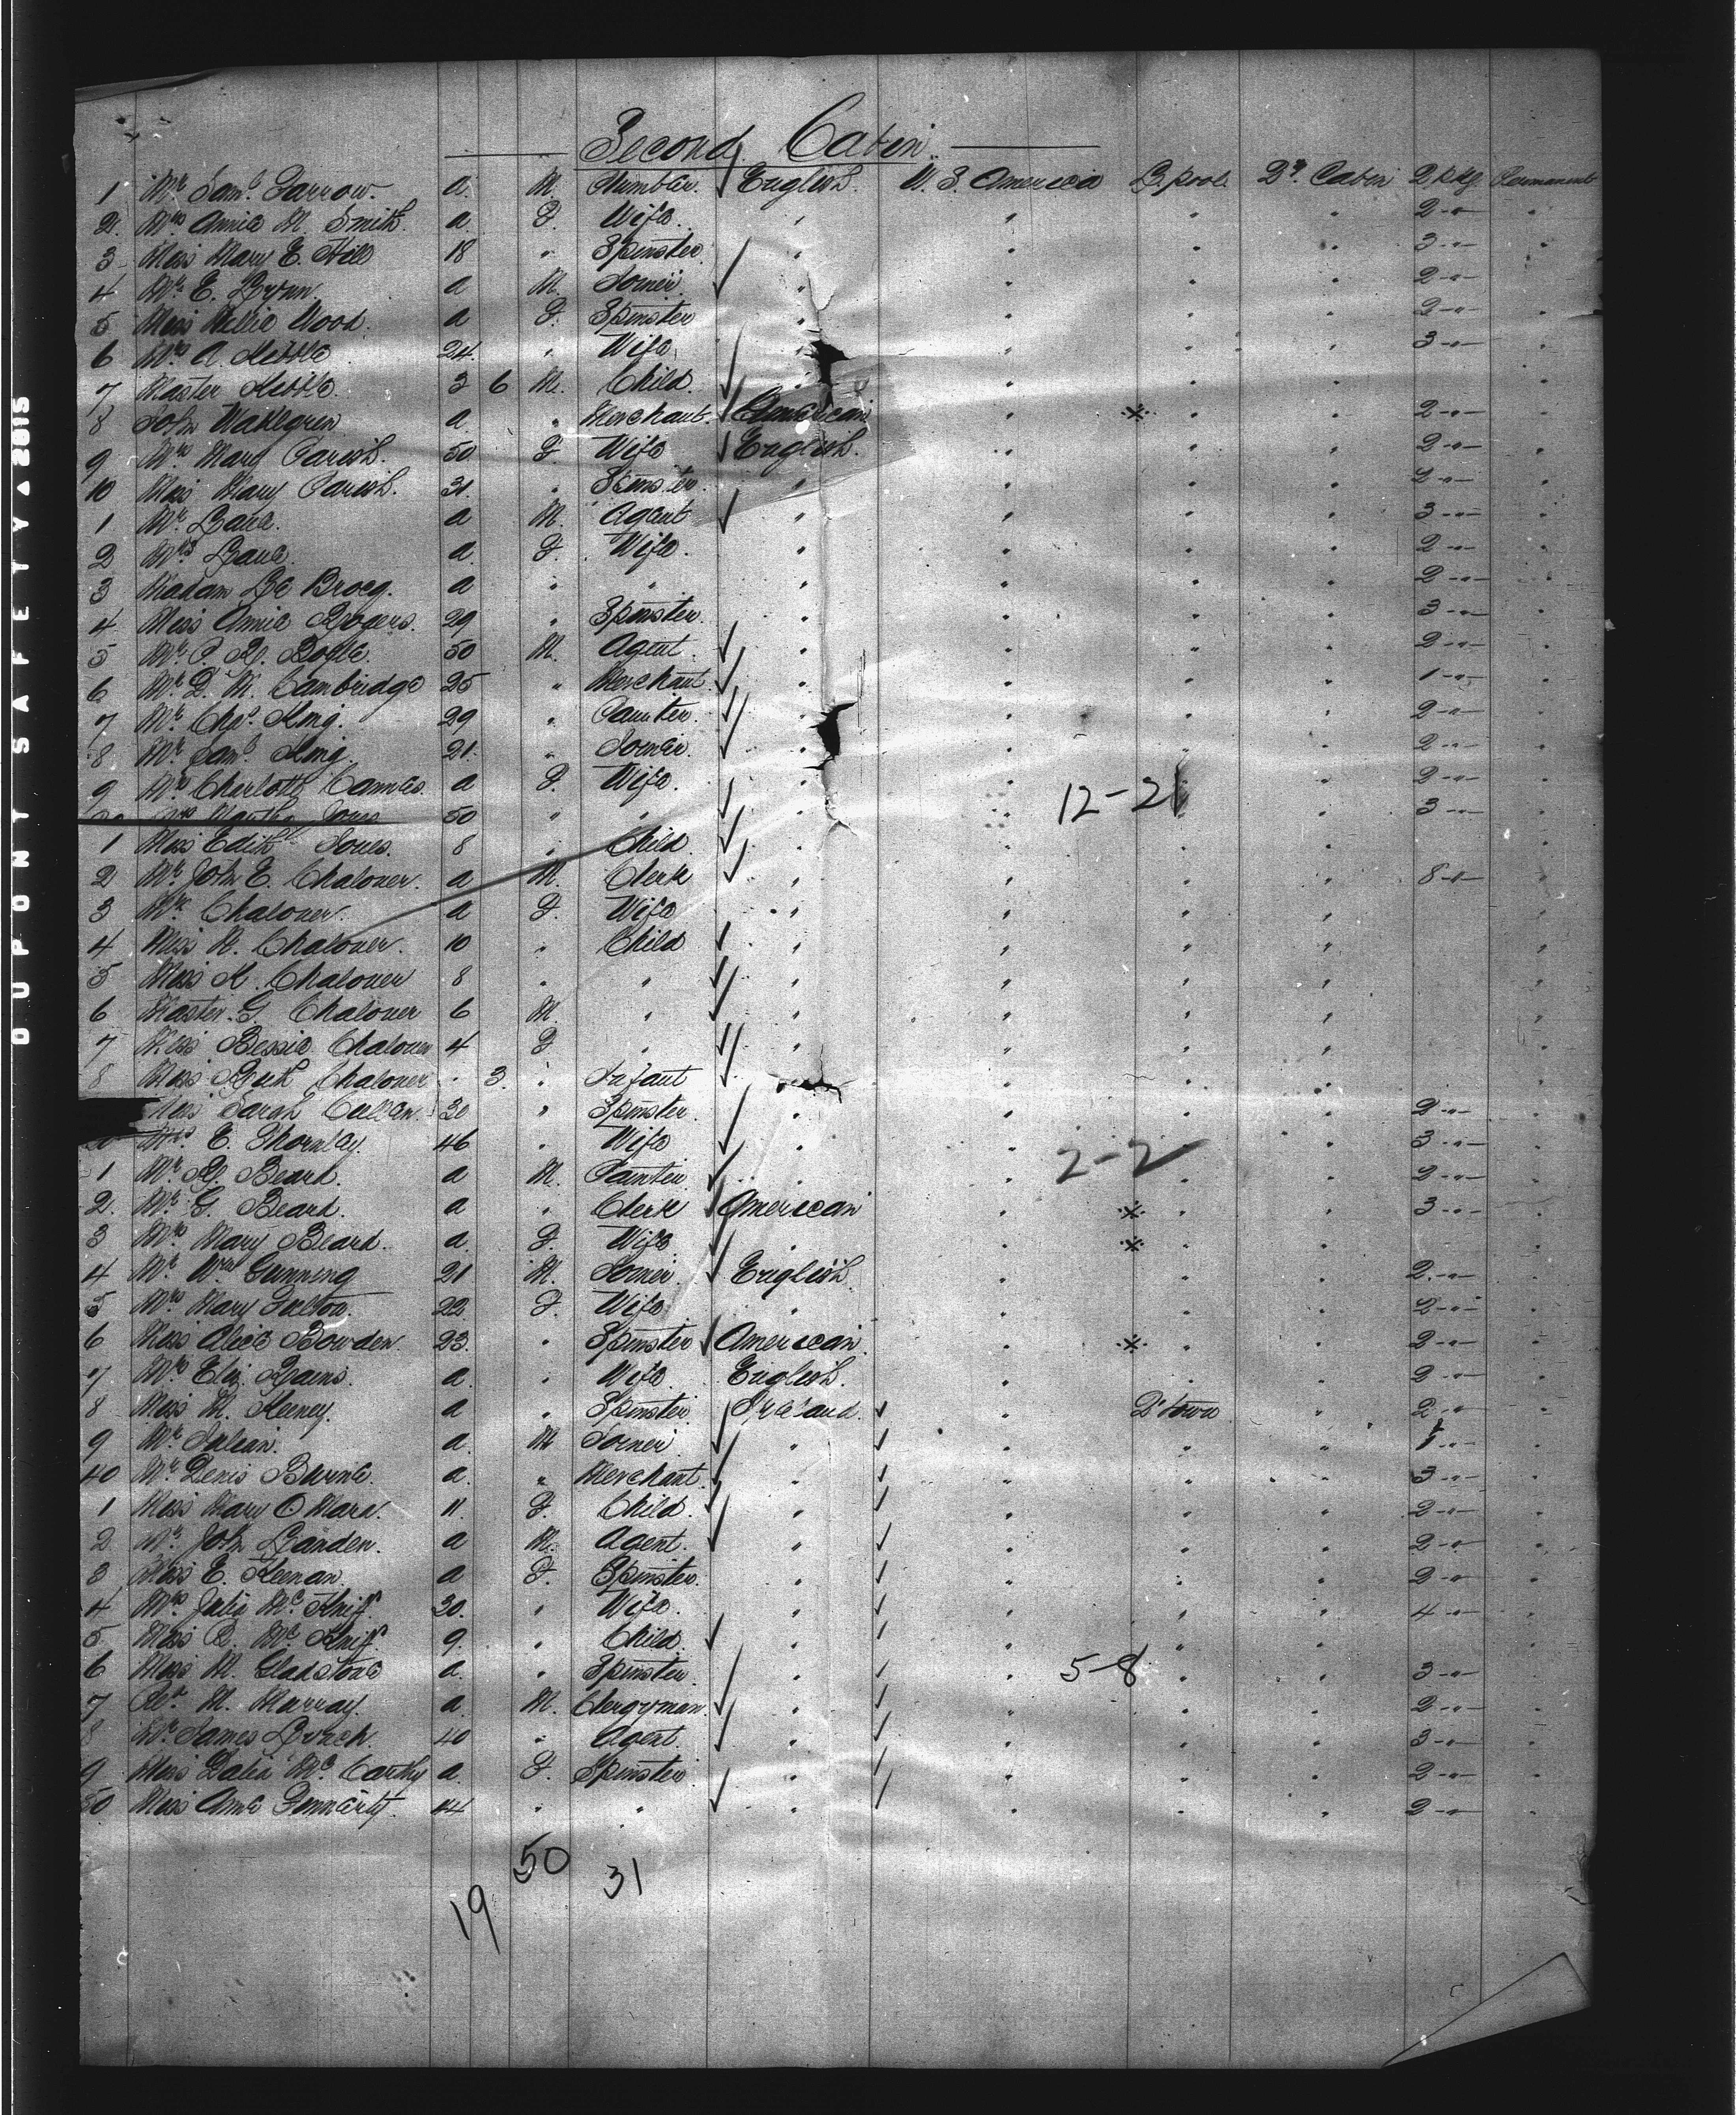 Second Cabin
1 Mr Saml Farrow. a. M. Plumber. English. U. S. America L.pool 2nd Cabin 2 pkg Permanent
2. Mrs Annie M. Smith. a. F. Wife. " " " " 2 -"-
3 Miss Mary E. Hill 18 " Spinster. " " " " 3 -"-
4 Mr E. Lynn a M Joiner. " " " " 2 -"-
5 Miss Nellie Wood. a F. Spinster " " " " 2 -"-
6 Mrs A. 24. " Wife. " " " " 3 -"-
7 Master 3 6 M. Child. " " " "
8 John Wahlgren a " Merchant. American " * " 2 -"-
9 Mrs Mary Parish. 50 F. Wife English. " " " 2 -"-
10 Miss Mary Parish. 31. " Spinster. " " " " 2 -"-
1 Mr Lane. a M. Agent " " " " 3 -"-
2 Mrs Lane. a. F. Wife. " " " " 2 -"-
3 Madam De Broeg. a " " " " " " 2 -"-
4 Miss Annie Rogers. 29 " Spinster. " " " " 3 -"-
5 Mr P. R. 50 M. Agent. " " " " 2 -"-
6 Mr D. M. Cambridge 25 " Merchant. " " " " 1 -"-
7 Mr Chas King. 29 " Painter. " " " " 2 -"-
8 Mr Saml King. 21. " Joiner. " " " " 2 -"-
9 Mrs Charlotte a F. Wife. " " " " 2 -"-
12-21
20 Mrs Martha Jones 50 " " " " " " 3 -"-
1 Miss Edith Jones. 8 " Child. " " " "
2 Mr John E. Chaloner. a M. Clerk " " " " 8 -"-
3 Mrs Chaloner. a F. Wife " " " "
4 Miss H. Chaloner. 10 " Child " " " "
5 Miss K. Chaloner 8 " " " " " "
6 Master. G. Chaloner 6 M. " " " " "
7 Miss Bessie Chaloner 4 F " " " " "
8 Miss Ruth Chaloner 3. " Infant " " " "
Miss Sarah Cullen. 30 " Spinster. " " " " 2 -"-
30 Mrs E. Thornley. 46 " Wife " " " " 3 -"-
2-2
1 Mr R. Beard. a M. Painter. " " " " 2 -"-
2. Mr G. Beard. a " Clerk American " * " " 3 -"-
3 Mrs Mary Beard. a. F. Wife " " * " "
4 Mr Wm Gunning 21 M. Joiner. English " " " 2. -"-
5 Mrs Mary Fulton. 22 F. Wife " " " " 2 -"-
6 Miss Alice Bowden. 23. " Spinster American. " * " " 2 -"-
7 Mrs Eliz. Rains. a. " Wife English. " " " 2 -"-
8 Miss M. Keeney. a " Spinster Ireland. " Q'town " 2 -"-
9 Mr Julian. a. M Joiner " " " " 1 -"-
40 Mr Denis Burne. a. " Merchant. " " " " 3 -"-
1 Miss Mary O Mara. 11. F. Child. " " " " 2 -"-
2 Mr John Landen. a M. Agent. " " " " 2 -"-
3 Miss E. Keenan a F. Spinster. " " " " 2 -"-
4 Mrs Julia Mc Kniff. 30. " Wife. " " " " 4 -"-
5 Miss B. Mc Kniff. 9. " Child. " " " "
6 Miss M. Gladstone a. " Spinster. " " " " 3 -"-
5-8
7 Revd M. Murray. a. M. Clergyman. " " " " 2 -"-
8 Mr James Lynch. 40 " Agent. " " " " 3 -"-
9 Miss Delia Mc Carthy a. F. Spinster. " " " " 2 -"-
50 Miss Ame Finnerty. 44 " " " " " " 2 -"-
50
19 31
DUPONT SAFETY ▲ 2815